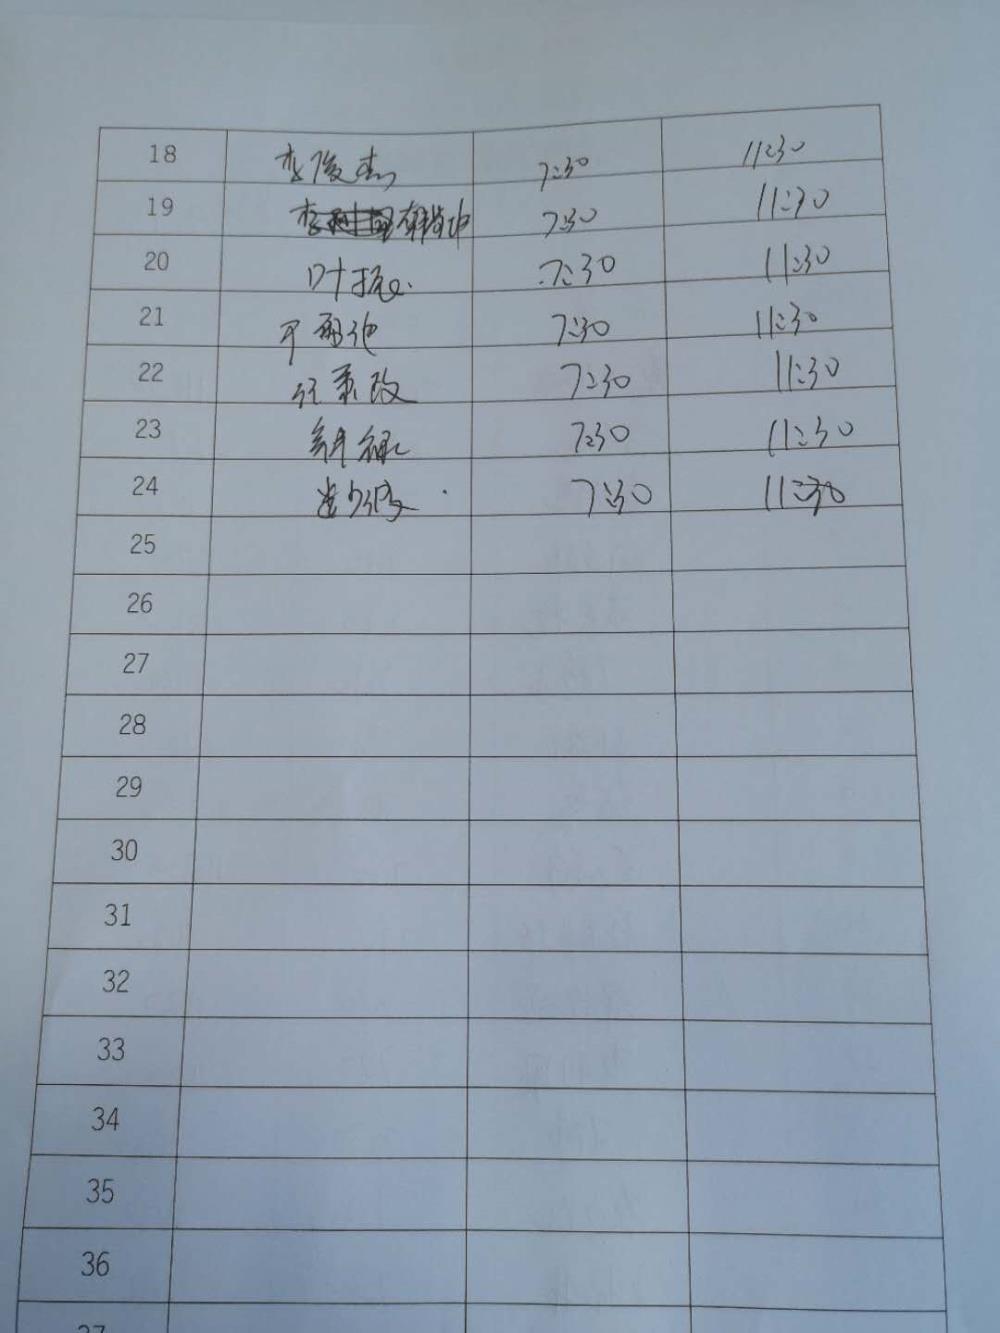 18 李俊杰 7:30 11:30
19 7:30 11:30
20 叶振 7:30 11:30
21 7:30 11:30
22 7:30 11:30
23 7:30 11:30
24 7:30 11:30
25
26
27
28
29
30
31
32
33
34
35
36
37